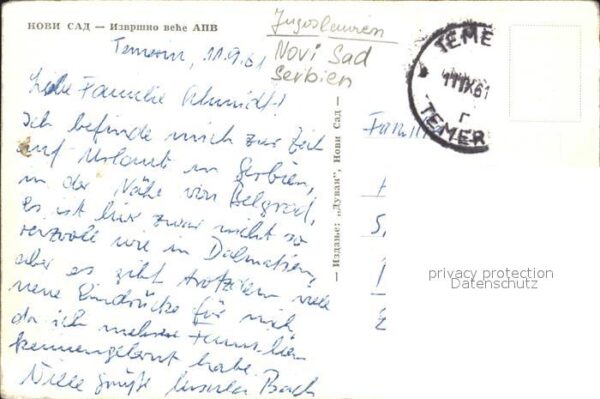 НОВИ САД — Извршно веће АПВ
Jugoslawien
Novi Sad
Serbien
Temerin, 11.9.61
Liebe Familie Schmidt!
Ich befinde mich zur Zeit
auf Urlaub in Serbien,
in der Nähe von Belgrad,
es ist hier zwar nicht so
reizvoll wie in Dalmatien,
aber es gibt trotzdem viele
neue Eindrücke für mich
da ich mehrere Familien
kennengelernt habe.
Viele Grüße Ursula Bach
— Издање: „Дунав“, Нови Сад —
TEME
11 IX 61
г
TEMER
Famili
privacy protection
Datenschutz